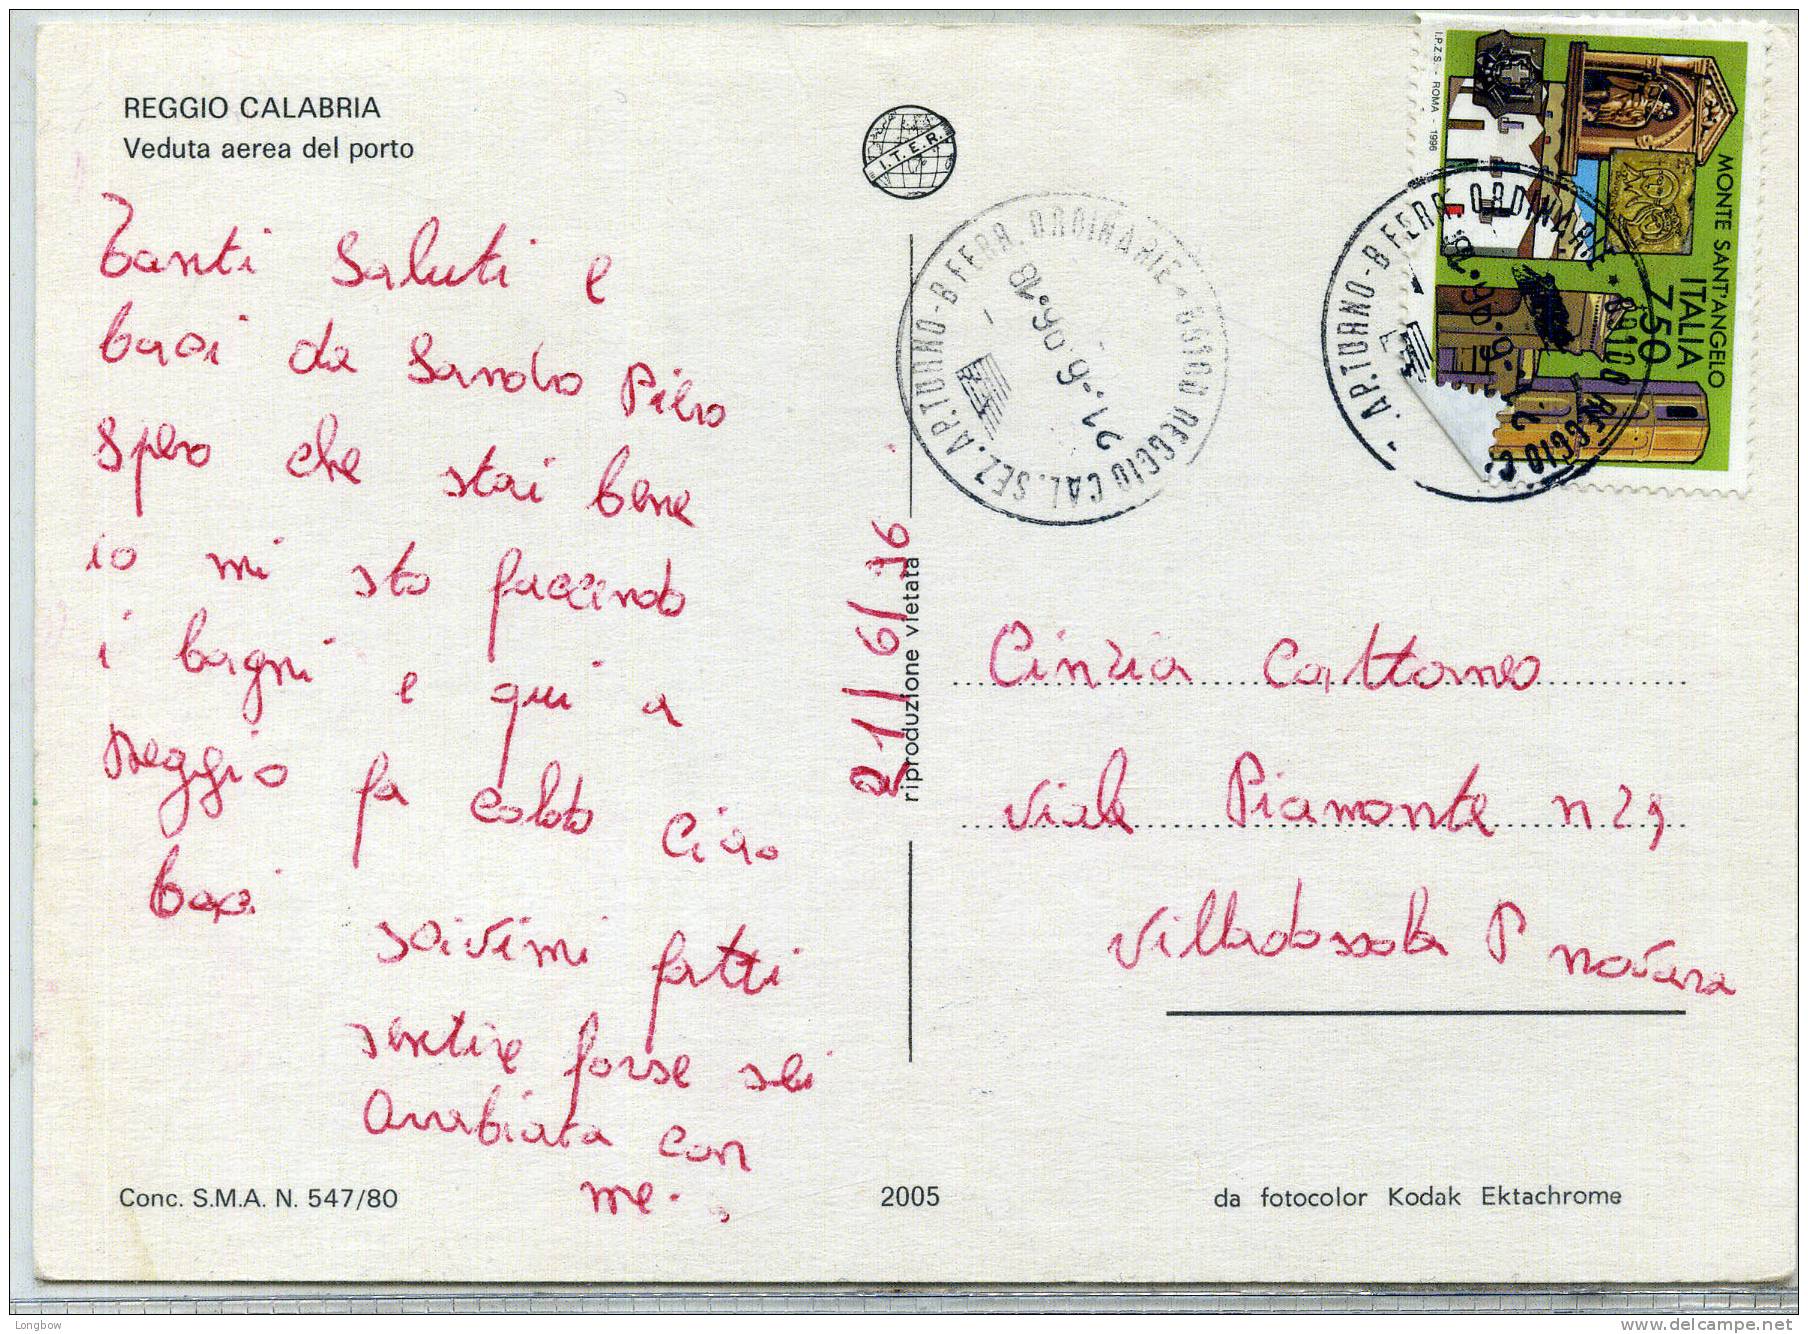 REGGIO CALABRIA
Veduta aerea del porto
I.T.E.R.
Tanti saluti e
baci da Sandro Piero
Spero che stai bene
io mi sto faccendo
i bagni e qui a
Reggio fa caldo ciao
baci
scivimi fatti
sentire forse sei
arrabiata con
me.
Conc. S.M.A. N. 547/80
21/6/96
riproduzione vietata
2005
I.P.Z.S. - ROMA - 1996
MONTE SANT'ANGELO
ITALIA
750
AP.TURNO-B FERR. ORDINARIE * 89100 REGGIO CAL. SEZ.
21.-6.90.-18
AP.TURNO-B FERR. ORDINARIE * 89100 REGGIO C
Cinzia Cattaneo
viale Piamonte n 29
Villadossola P novara
da fotocolor Kodak Ektachrome
Longbow
delcampe.net